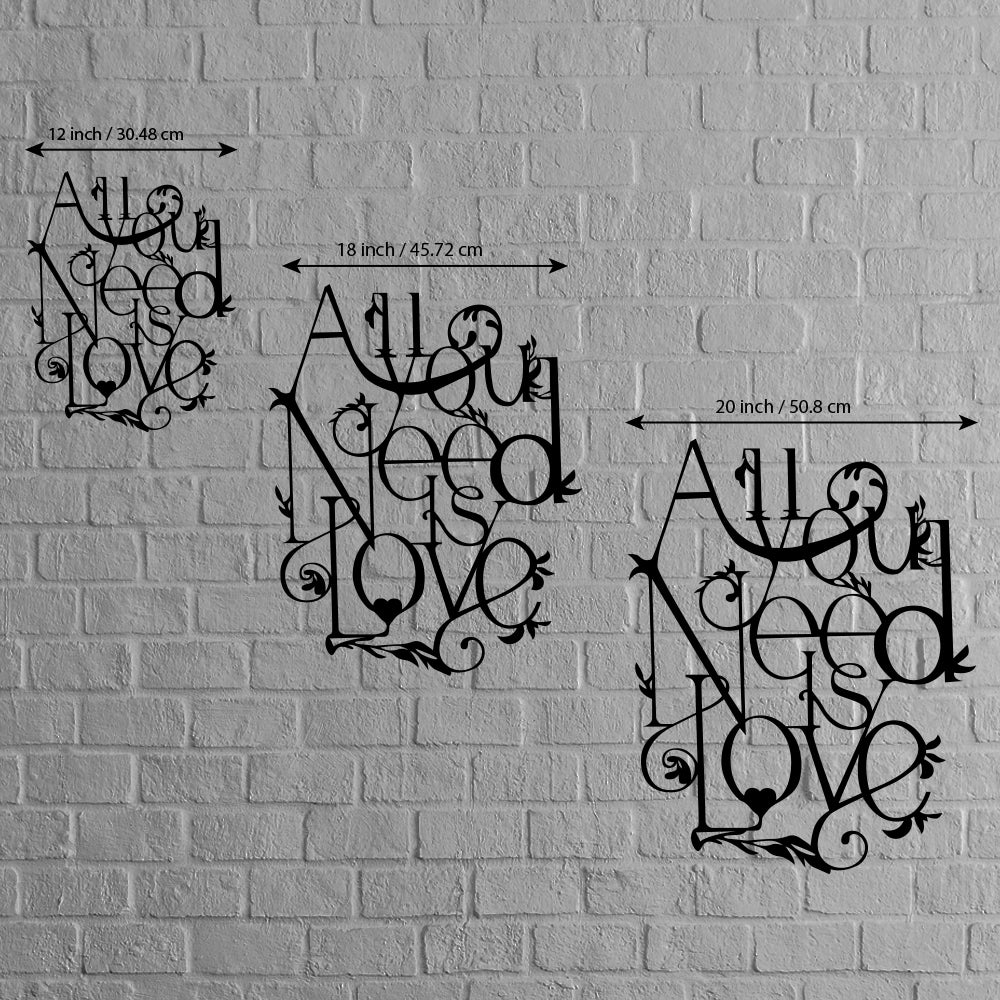 12 inch / 30.48 cm
All You
Need
is
Love
18 inch / 45.72 cm
All You
Need
is
Love
20 inch / 50.8 cm
All You
Need
is
Love